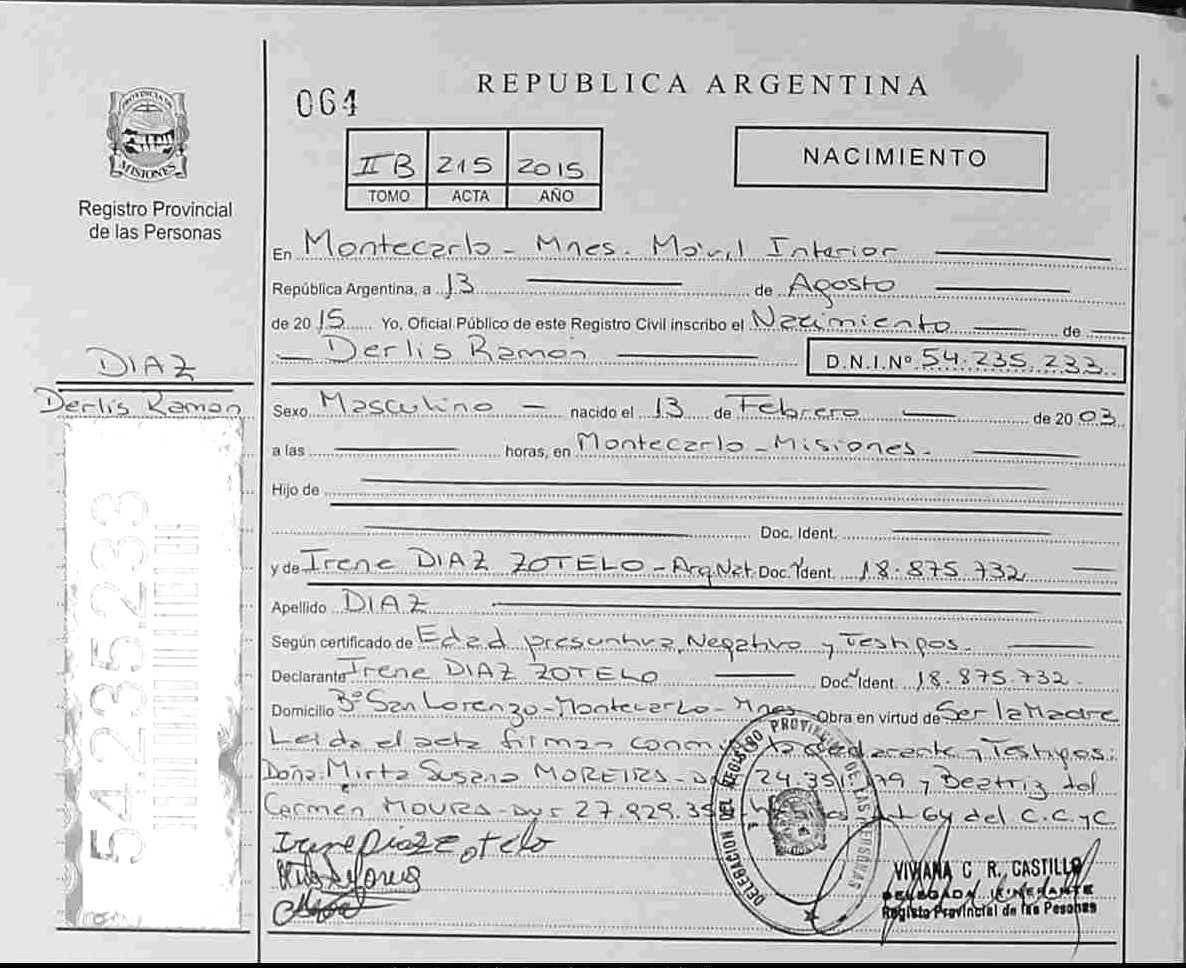 REPUBLICA ARGENTINA
064
NACIMIENTO
II B 215 2015
TOMO ACTA AÑO
PROVINCIA DE
MISIONES
Registro Provincial
de las Personas
En Montecarlo - Mnes. Móvil Interior
República Argentina, a 13 de Agosto
de 2015 Yo, Oficial Público de este Registro Civil inscribo el Nacimiento de
Derlis Ramon D.N.I.Nº 54.235.233
DIAZ
Derlis Ramon
54235233
Sexo Masculino nacido el 13 de Febrero de 2003
a las horas, en Montecarlo - Misiones.
Hijo de
Doc. Ident.
y de Irene DIAZ ZOTELO - Arg. Nat. Doc. Ident. 18.875.732
Apellido DIAZ
Según certificado de Edad presuntiva, Negativo y Testigos.
Declarante Irene DIAZ ZOTELO Doc. Ident. 18.875.732.
Domicilio Bº San Lorenzo - Montecarlo - Mnes Obra en virtud de Ser la Madre
Leida el acta firman conmigo la declarante y Testigos:
Doña: Mirta Susana MOREIRA - 24.351. 79 y Beatriz del
Carmen MOURA - 27.929.35 64 del C.C.yC.
Irene Diaz Zotelo
DELEGACION DEL REGISTRO PROVINCIAL DE LAS PERSONAS
VIVIANA C R. CASTILLO
DELEGADA ITINERANTE
Registo Provincial de las Pesonas